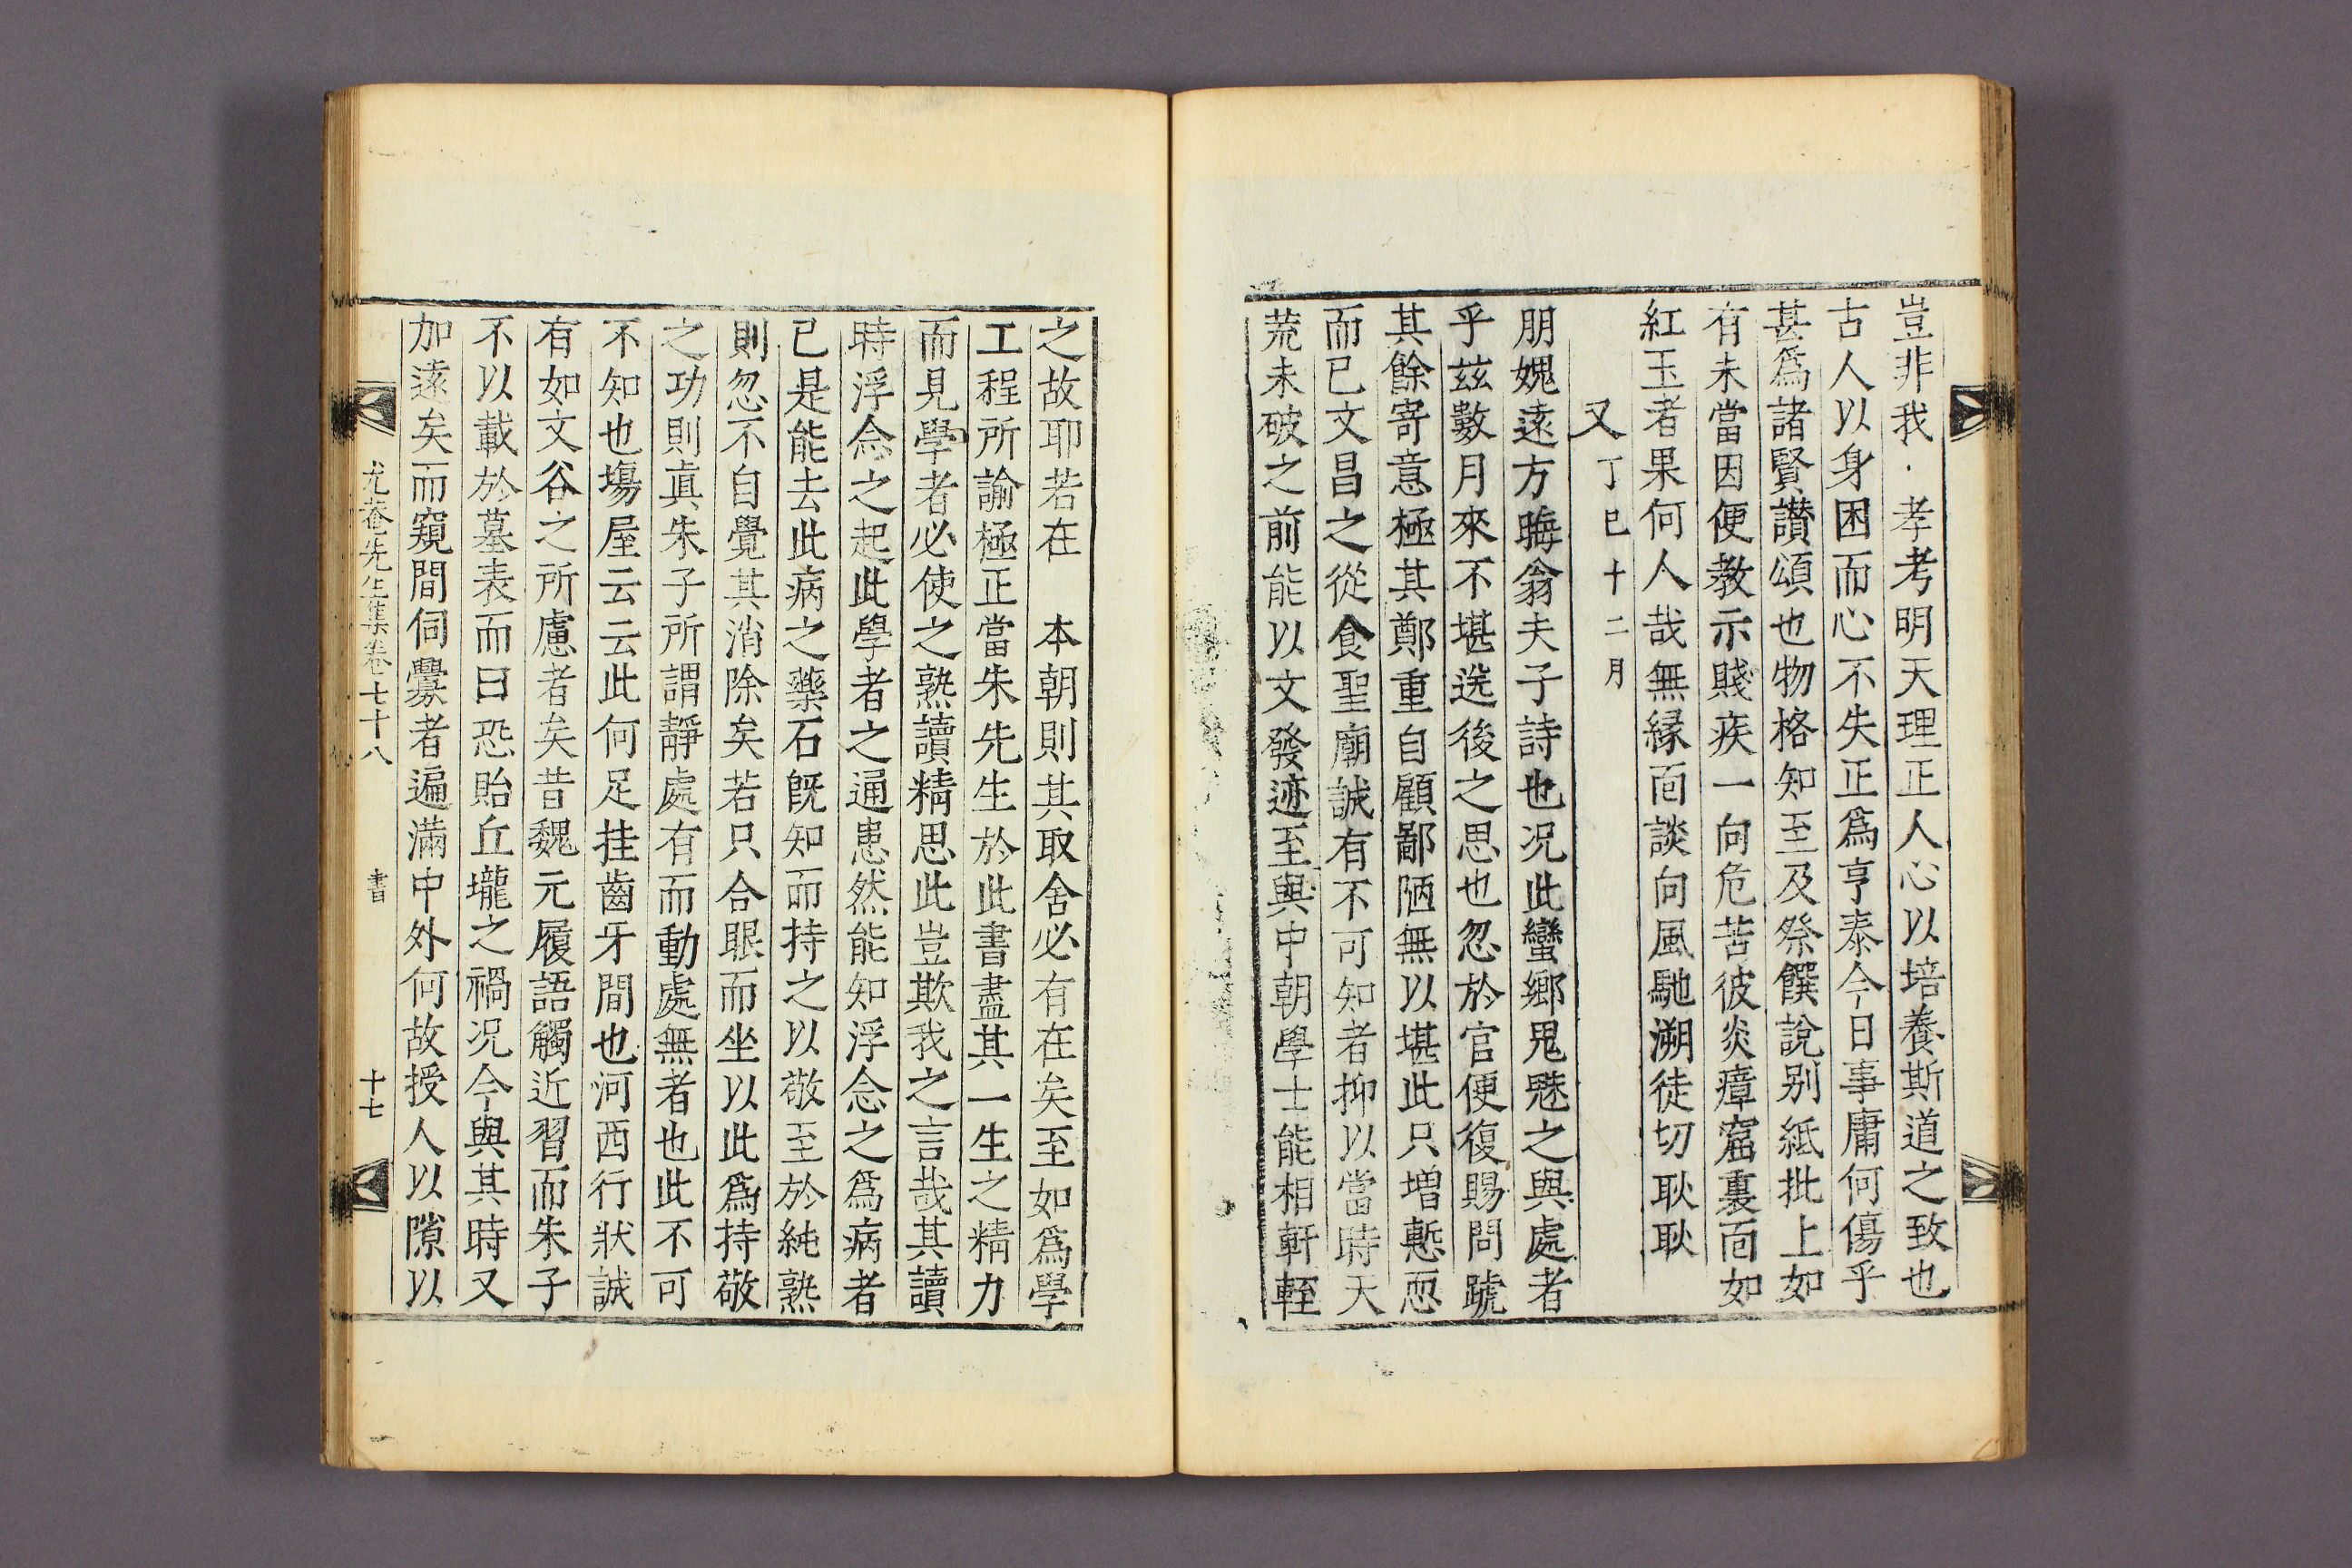 豈非我孝考明天理正人心以培養斯道之致也
古人以身困而心不失正爲亨泰今日事庸何傷乎
甚爲諸賢讃頌也物格知至及祭饌說别紙批上如
有未當因便教示賤疾一向危苦彼炎瘴窟裏靣如
紅玉者果何人哉無縁靣談向風馳溯徒切耿耿
又丁巳十二月
朋媿遠方晦翁夫子詩也况此蠻鄉鬼魅之與處者
乎玆數月來不堪迭後之思也忽於官便復賜問䟽
其餘寄意極其鄭重自顧鄙陋無以堪此只増慙恧
而已文昌之從食聖廟誠有不可知者抑以當時天
荒未破之前能以文發迹至與中朝學士能相軒輊
之故耶若在 本朝則其取舍必有在矣至如爲學
工程所諭極正當朱先生於此書盡其一生之精力
而見學者必使之熟讀精思此豈欺我之言哉其讀
時浮念之起此學者之通患然能知浮念之爲病者
已是能去此病之藥石旣知而持之以敬至於純熟
則忽不自覺其消除矣若只合眼而坐以此爲持敬
之功則眞朱子所謂靜處有而動處無者也此不可
不知也塲屋云云此何足挂齒牙間也河西行狀誠
有如文谷之所慮者矣昔魏元履語觸近習而朱子
不以載於墓表而曰恐貽丘壠之禍况今與其時又
加遠矣而窺間伺釁者遍滿中外何故授人以隙以
尤菴先生集卷七十八 書 十七